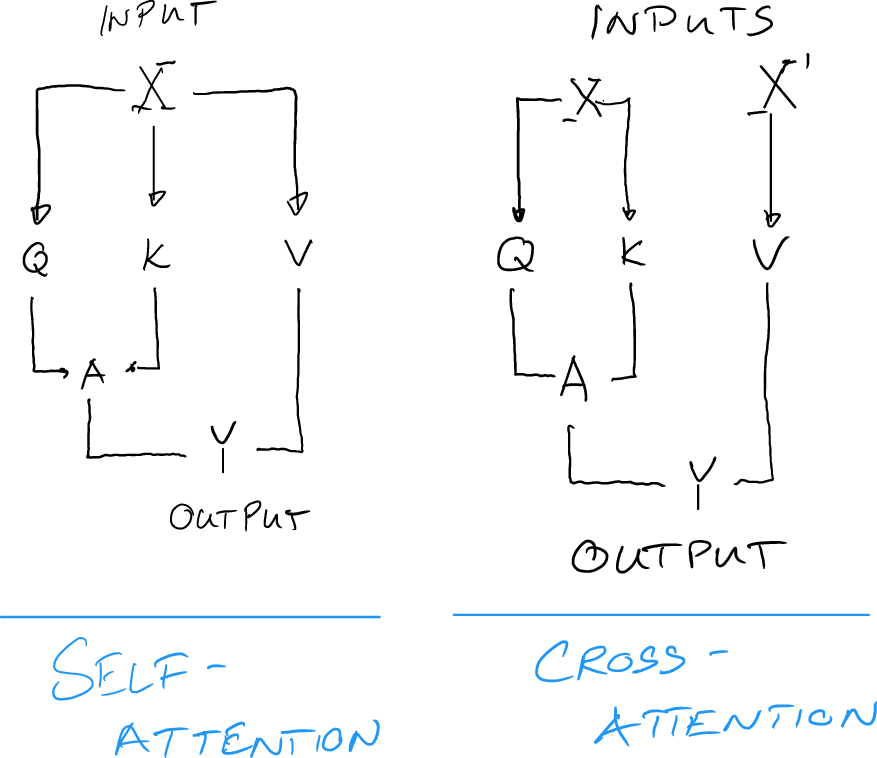 INPUT
X
Q K V
A
Y
OUTPUT
SELF-
ATTENTION
INPUTS
X X'
Q K V
A
Y
OUTPUT
CROSS-
ATTENTION